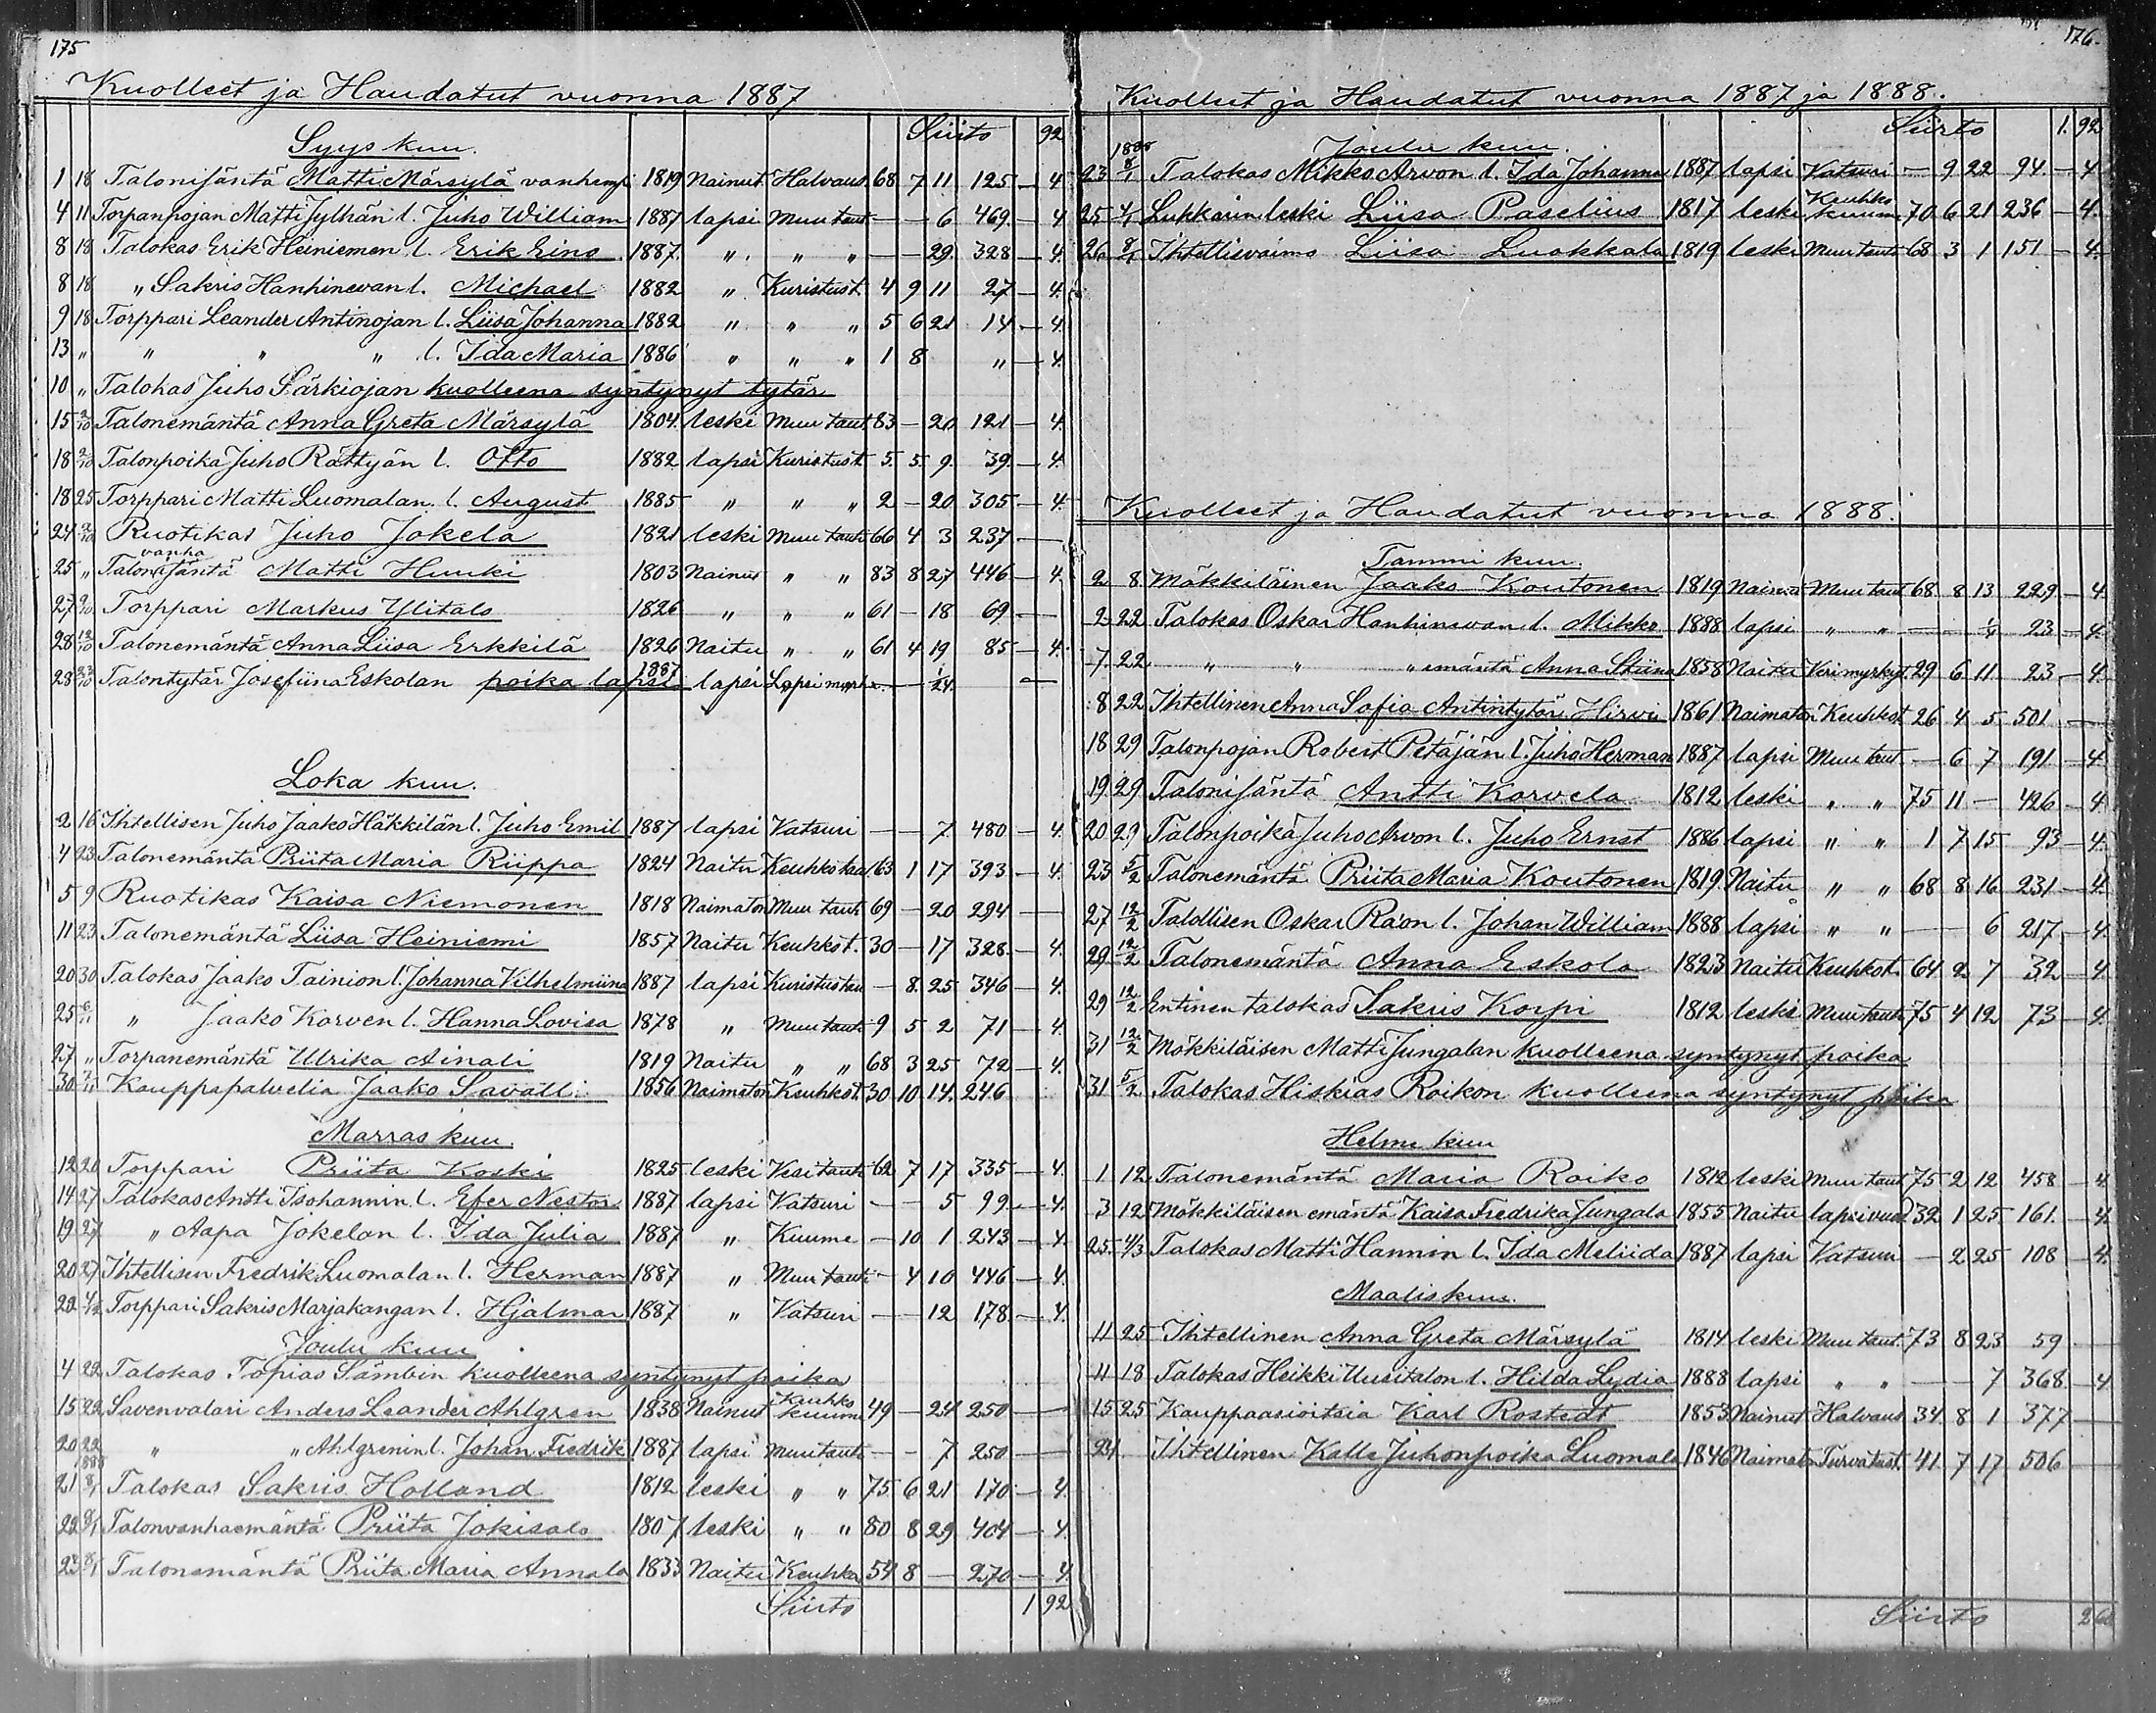 175
Kuolleet ja Haudatut vuonna 1887
Siirto 92
Syys kuu.
1 18 Talonisäntä Matti Märsylä vanhempi 1819 Nainut Halvaus 68 7 11 125 — 4
4 11 Torpanpojan Matti Jylhän l. Juho William 1887 lapsi Muu taut — — 6 469 — 4
8 18 Talokas Erik Heiniemen l. Erik Eino 1887 " " " — — 29 328 — 4.
8 18 " Sakris Hanhinevan l. Michael 1882 " Kuristust. 4 9 11 27 — 4.
9 18 Torppari Leander Antinojan l. Liisa Johanna 1882 " " " 5 6 21 14 — 4.
13 " " " " l. Ida Maria 1886 " " " 1 8 " — 4.
10 " Talokas Juho Särkiojan kuolleena syntynyt tytär
15 2/10 Talonemäntä Anna Greta Märsylä 1804 leski Muu taut. 83 — 20 121 — 4.
18 2/10 Talonpoika Juho Rättyän l. Otto 1882 lapsi Kuristust. 5 5 9 39 — 4.
18 25 Torppari Matti Luomalan l. August 1885 " " " 2 — 20 305 — 4.
24 2/10 Ruotikas Juho Jokela 1821 leski Muu taut 66 4 3 237 —
25 " Talon vanha isäntä Matti Huuki 1803 Nainut " " 83 8 27 446 — 4.
27 2/10 Torppari Markus Ylitalo 1826 " " " 61 — 18 69 —
28 12/10 Talonemäntä Anna Liisa Erkkilä 1826 Naitu " " 61 4 19 85 — 4.
28 23/10 Talontytär Josefiina Eskolan poika lapsi 1887 lapsi — — 1/24 —
Loka kuu.
2 16 Ihtellisen Juho Jaako Häkkilän l. Juho Emil 1887 lapsi Vatsuri — — 7 480 — 4.
4 23 Talonemäntä Priita Maria Riippa 1824 Naitu Keuhko taut. 63 1 17 393 — 4.
5 9 Ruotikas Kaisa Niemonen 1818 Naimaton Muu taut 69 — 20 294 —
11 23 Talonemäntä Liisa Heiniemi 1857 Naitu Keuhkot. 30 — 17 328 — 4.
20 30 Talokas Jaako Tainion l. Johanna Vilhelmiina 1887 lapsi Kuristustau — 8 25 346 — 4.
25 6/11 " Jaako Korven l. Hanna Lovisa 1878 " Muu taut 9 5 2 71 — 4.
27 " Torpanemäntä Ulrika Ainali 1819 Naitu " " 68 3 25 72 — 4.
30 Kauppapalvelia Jaako Savalli 1856 Naimaton Keuhkot. 30 10 14 246
Marras kuu.
12 20 Torppari Priita Koski 1825 leski Vesi taut 62 7 17 335 — 4.
14 27 Talokas Antti Isohannin l. Efer Nestor 1887 lapsi Vatsuri — — 5 99 — 4.
19 27 " Aapa Jokelan l. Ida Julia 1887 " Kuume — 10 1 243 — 4.
20 27 Ihtellisen Fredrik Luomalan l. Herman 1887 " Muu taut — 4 10 446 — 4.
22 4/12 Torppari Sakris Marjakangan l. Hjalmar 1887 " Vatsuri — — 12 178 — 4.
Joulu kuu
4 22 Talokas Topias Sämbin kuolleena syntynyt poika
15 22 Savenvalari Anders Leander Ahlgren 1838 Nainut Keuhko kuume 49 — 24 250 —
20 22 " " Ahlgrenin l. Johan Fredrik 1887 lapsi Muu taut — — 7 250 —
1888
21 8/1 Talokas Sakris Holland 1812 leski " " 75 6 21 170 — 4.
22 8/1 Talonvanhaemäntä Priita Jokisalo 1807 leski " " 80 8 29 404 — 4.
23 8/1 Talonemäntä Priita Maria Annala 1833 Naitu Keuhko 54 8 — 270 — 4.
Siirto 1 92
176.
Kuolleet ja Haudatut vuonna 1887 ja 1888.
Siirto 1. 92
Joulu kuu.
1888
23 8/1 Talokas Mikko Arvon l. Ida Johanna 1887 lapsi Vatsuri — 9 22 94 — 4
25 4/1 Lukkarin leski Liisa Paselius 1817 leski Keuhko kuume 70 6 21 236 — 4.
26 8/1 Ihtellisvaimo Liisa Luokkala 1819 leski Muu taut 68 3 1 151 — 4.
Kuolleet ja Haudatut vuonna 1888.
Tammi kuu.
2 8 Mökkiläinen Jaako Koutonen 1819 Nainut Muu taut 68 8 13 229 — 4
2 22 Talokas Oskar Hanhinevan l. Mikko 1888 lapsi " " — — 1/4 23 — 4.
7 22 " " " emäntä Anna Stiina 1858 Naitu Verimyrkyt. 29 6 11 23 — 4.
8 22 Ihtellinen Anna Sofia Antintytär Hirvi 1861 Naimaton Keuhkot 26 4 5 501 —
18 29 Talonpojan Robert Petäjän l. Juho Herman 1887 lapsi Muu taut — 6 7 191 — 4
19 29 Talonisäntä Antti Korvela 1812 leski " " 75 11 — 426 — 4
20 29 Talonpoika Juho Arvon l. Juho Ernst 1886 lapsi " " 1 7 15 93 — 4.
23 5/2 Talonemäntä Priita Maria Koutonen 1819 Naitu " " 68 8 16 231 — 4.
27 12/2 Talollisen Oskar Raon l. Johan William 1888 lapsi " " — — 6 217 — 4.
29 12/2 Talonemäntä Anna Eskola 1823 Naitu Keuhkot. 64 2 7 32 — 4
29 12/2 Entinen talokas Sakris Korpi 1812 leski Muu taut 75 4 12 73 — 4.
31 12/2 Mökkiläisen Matti Jungalan kuolleena syntynyt poika
31 5/2 Talokas Hiskias Roikon kuolleena syntynyt poika
Helmi kuu
1 12 Talonemäntä Maria Roiko 1812 leski Muu taut 75 2 12 458 — 4
3 12 Mökkiläisen emäntä Kaisa Fredrika Jungala 1855 Naitu lapsivuod 32 1 25 161 — 4.
25 4/3 Talokas Matti Hannin l. Ida Meliida 1887 lapsi Vatsuri — 2 25 108 — 4.
Maaliskuu.
11 25 Ihtellinen Anna Greta Märsylä 1814 leski Muu taut. 73 8 23 59
11 18 Talokas Heikki Uusitalon l. Hilda Lydia 1888 lapsi " " — — 7 368 — 4
15 25 Kauppaasioitsia Karl Rostedt 1853 Nainut Halvaus 34 8 1 377 —
24 Ihtellinen Kalle Juhonpoika Luomala 1846 Naimaton Turvatust. 41 7 17 506 —
Siirto 2 60